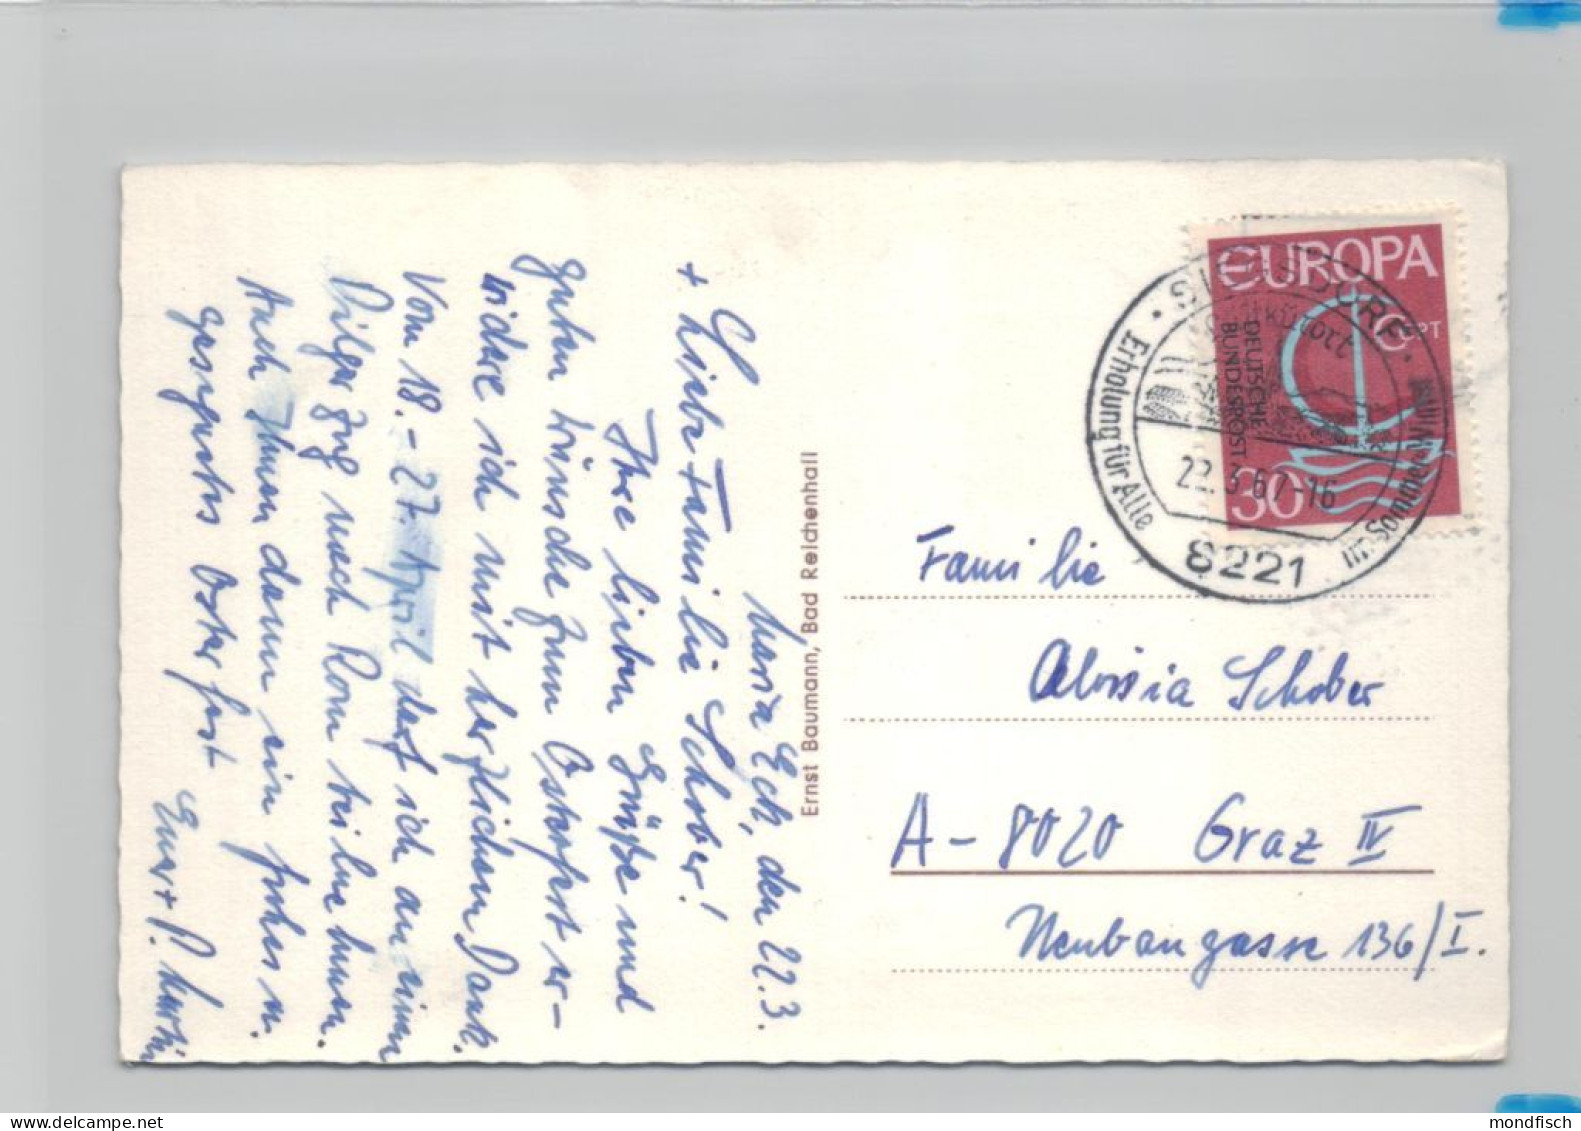 Maria Eck, den 22.3.
+ Liebe Familie Schober!
Ihre lieben Grüße und
guten Wünsche zum Osterfest er-
widere ich mit herzlichen Dank.
Vom 18. - 27. April darf ich an einem
Pilgerzug nach Rom teilnehmen.
Auch Ihnen dann ein frohes u.
gesegnetes Osterfest
Euer + P. Martin
Ernst Baumann, Bad Reichenhall
EUROPA
CEPT
DEUTSCHE
BUNDESPOST
30
SIEGSDORF
Luftkurort
Erholung für Alle
im Sommer u. Winter
22.3.67-16
8221
Familie
Aloisia Schober
A - 8020 Graz IV
Neubaugasse 136/I.
mondfisch